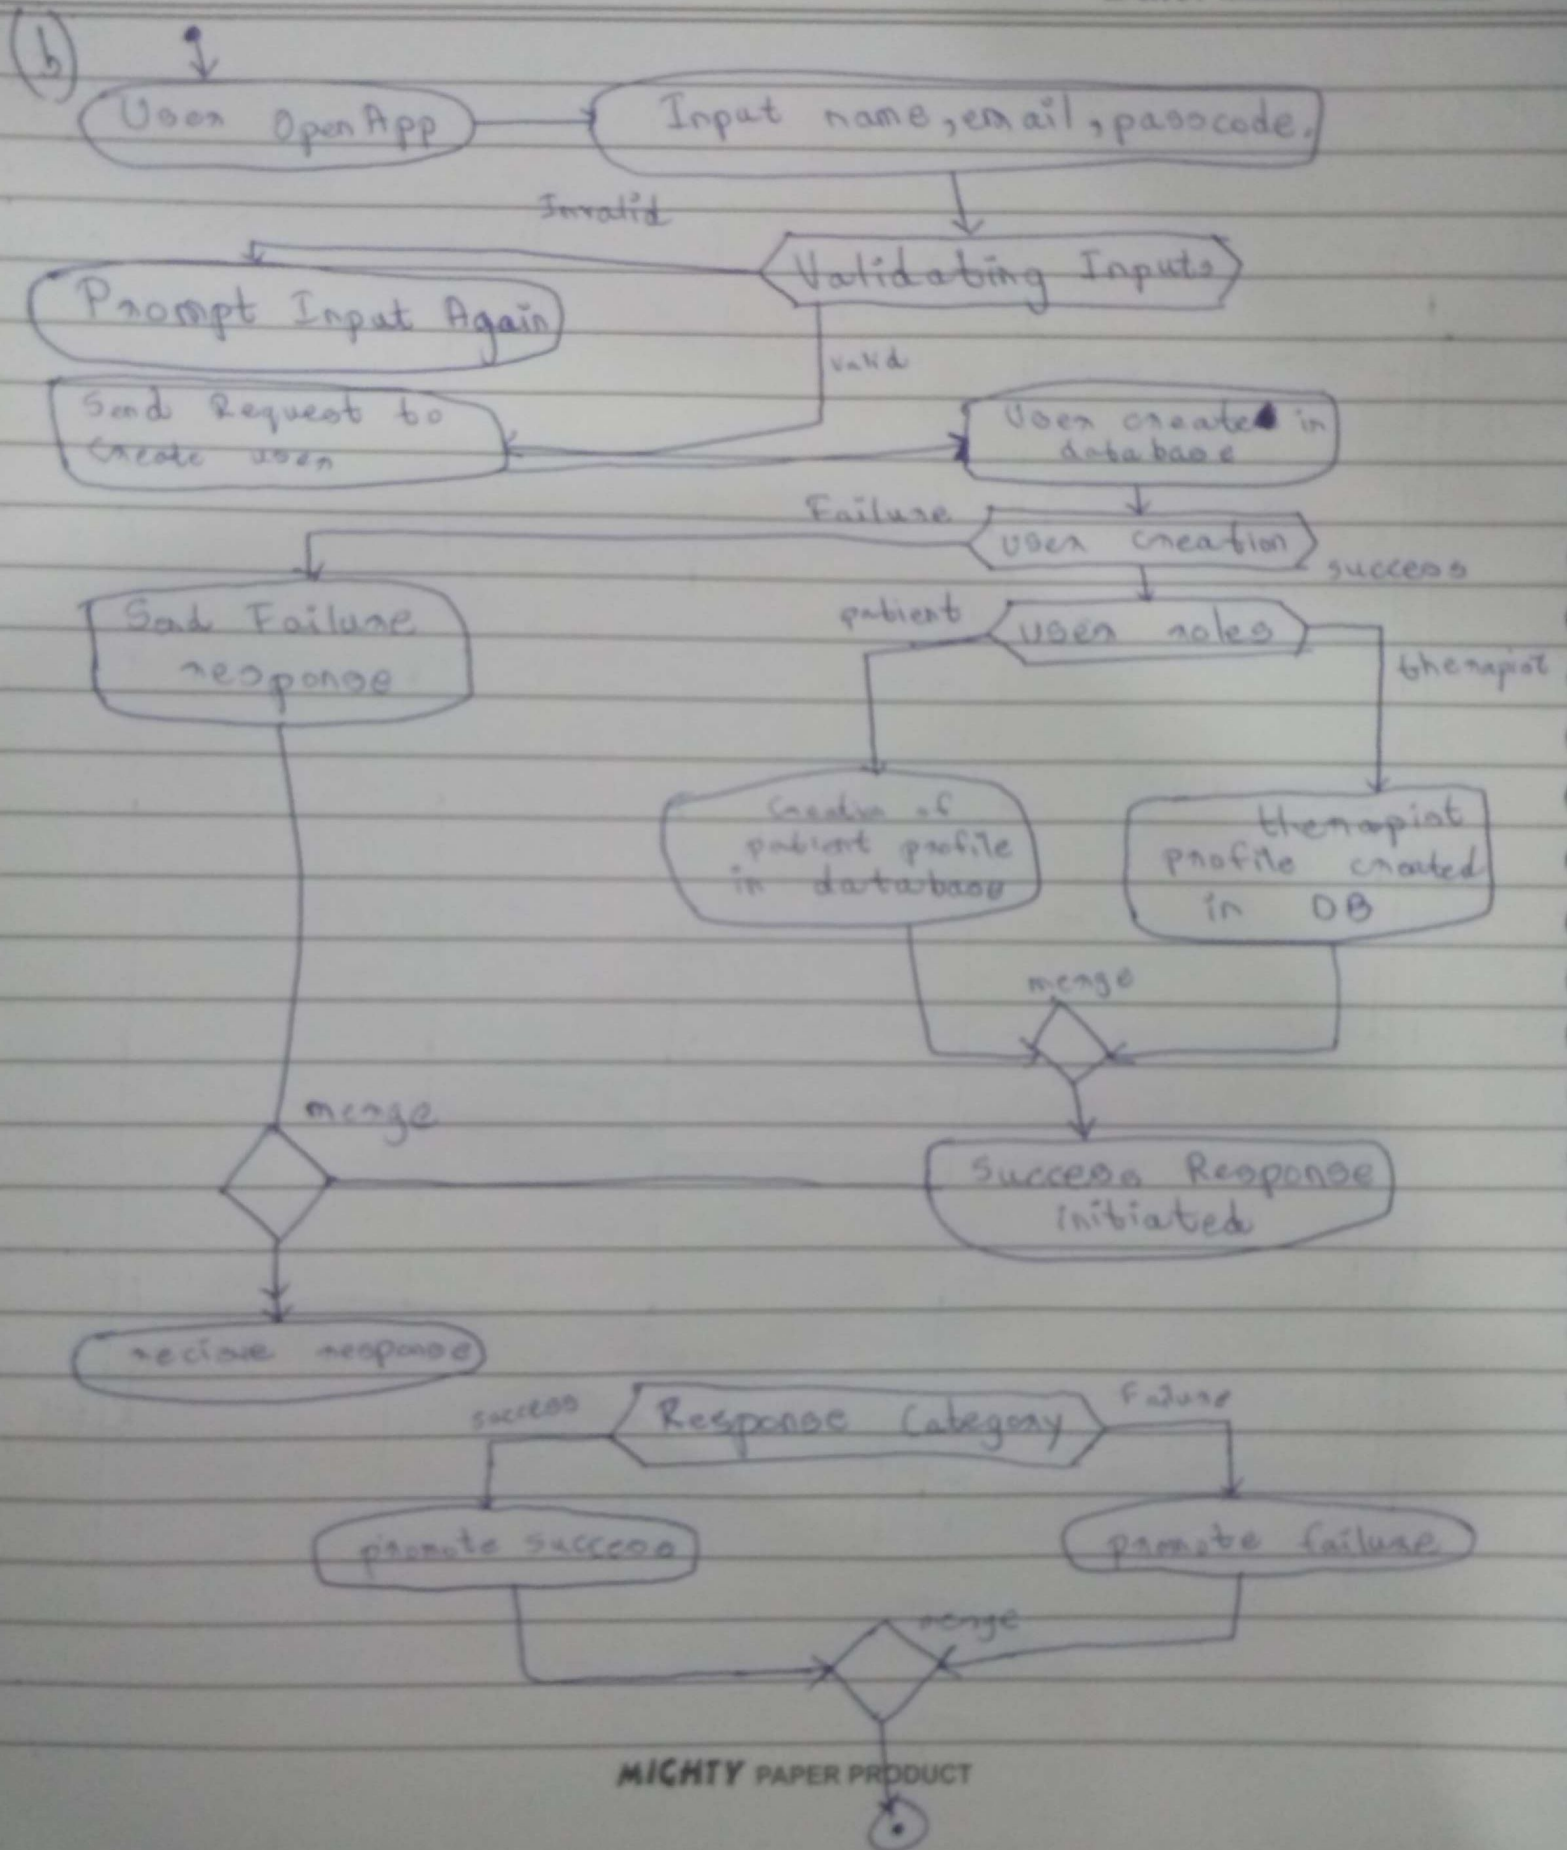 (b)
User OpenApp
Input name, email, passcode.
Invalid
Validating Inputs
Prompt Input Again
valid
Send Request to
create user
User created in
database
Failure
user creation
success
Send Failure
response
patient
user roles
therapist
Creation of
patient profile
in database
therapist
profile created
in DB
merge
merge
Success Response
initiated
recieve response
success
Response Category
Failure
promote success
promote failure
merge
MIGHTY PAPER PRODUCT